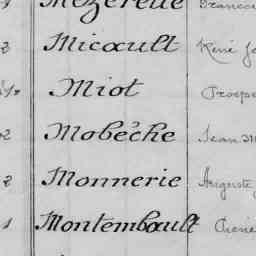 Mezerette
3 Micault René
Miot Prosper
2 Mobèche Jean
2 Monnerie Auguste
1 Montembault